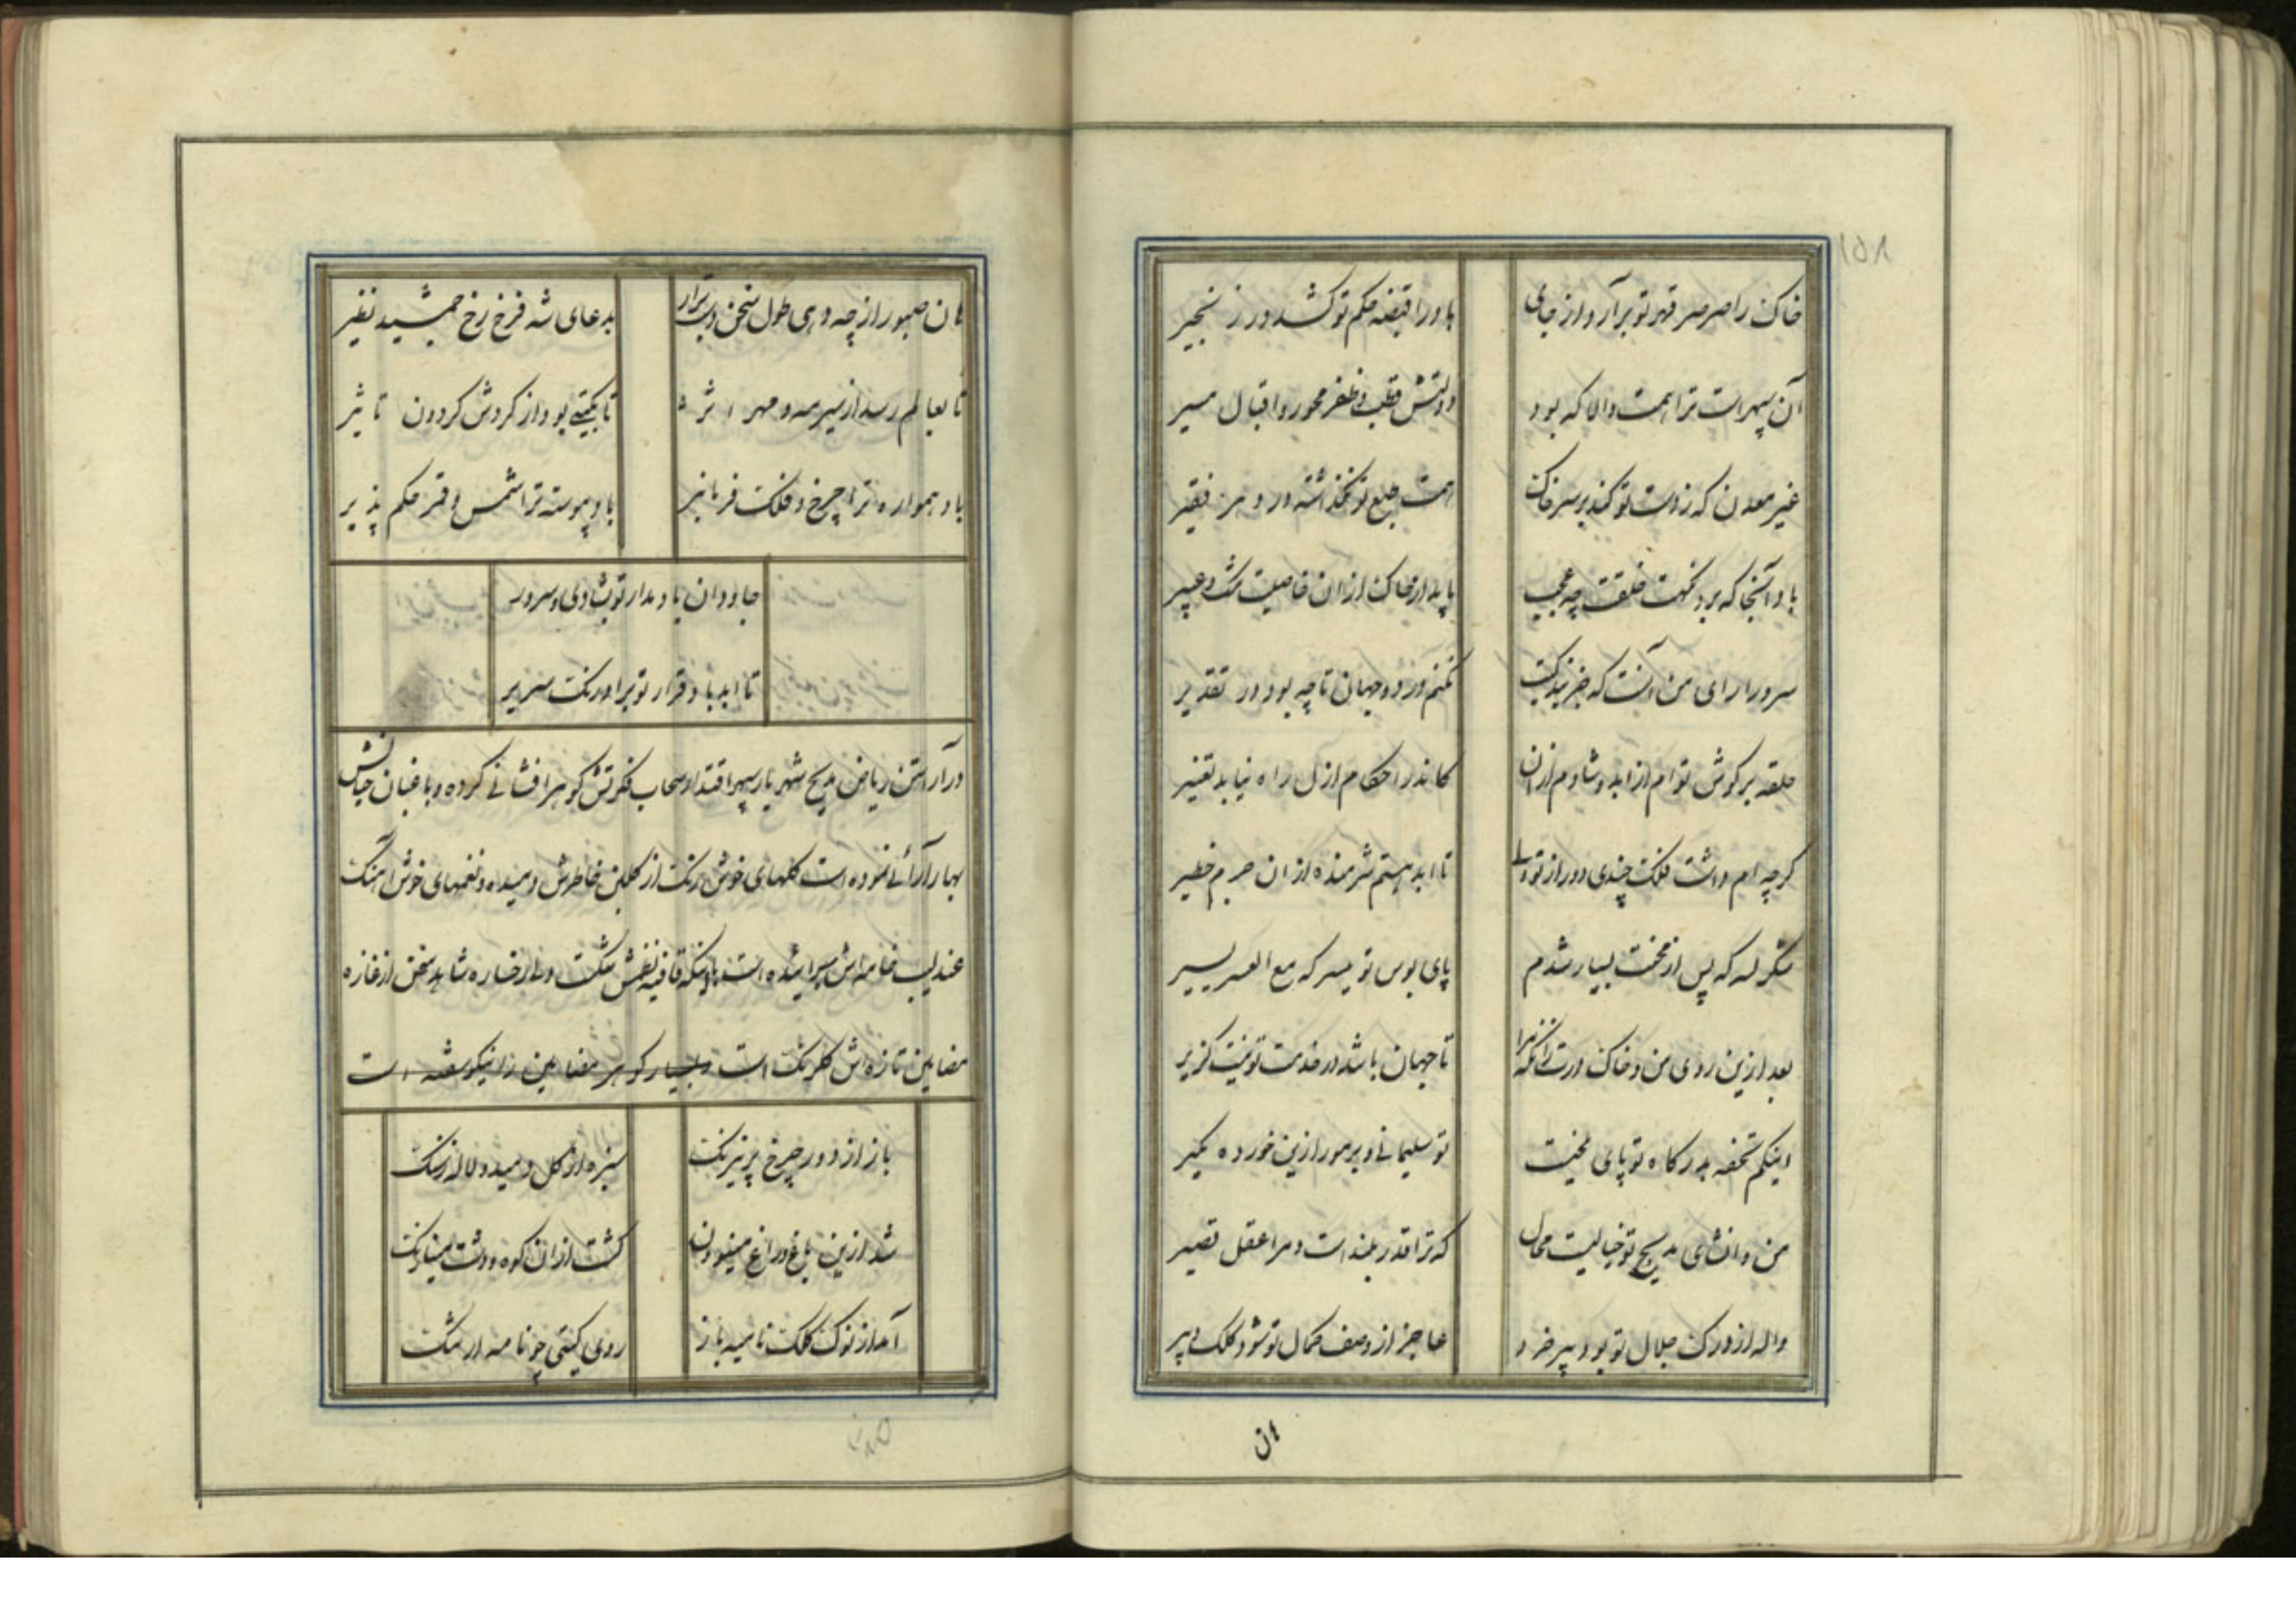 ۱۵۸
خاک را صرصر قهر تو برآرد از جای باد را قبضه حکم تو کشد در زنجیر
آن سپهر است ترا همت والا که بود دولتش قطب و ظفر محور و اقبال مسیر
غیر معدن که ز دست تو کند بر سر خاک همت طبع تو نگذاشته در دهر فقیر
باد آنجا که برد نکهت خلقت چه عجب یابد ار خاک از ان خاصیت مشک و عبیر
سرورا رای من آنست که جز بندگیت نکنم در دو جهان تا چه بود در تقدیر
حلقه بر کوش توام از ابد و شادم از ان کاندر احکام ازل راه نیابد تغییر
کرچه ام داشت فلک چندی دور از تو ولی تا ابد هستم شرمنده از ان جرم خطیر
شکر لله که پس از محنت بسیار شدم پای بوس تو میسر که مع العسر یسیر
بعد ازین روی من و خاک درت زانکه مرا تا جهان باشد در خدمت تو نیست کزیر
اینکم تحفه بدرکاه تو پای ملخیست تو سلیمانی و بر مور ازین خورده مکیر
من و انشای مدیح تو خیالیست محال که ترا قدر بلند است و مرا عقل قصیر
واله از درک جلال تو بود پیر خرد عاجز از وصف کمال تو شود کلک دبیر
هان صبور از چه دهی طول سخن دست برآر بدعای شه فرخ رخ جمشید نظیر
تا بعالم رسد از سیر مه و مهر اثر تا بکیتی بود از کردش کردون تاثیر
باد همواره ترا چرخ و فلک فرمانبر باد پیوسته ترا شمس و قمر حکم پذیر
جاودان باد مدار تو بشادی و سرور
تا ابد باد قرار تو بر اورنک سریر
در آراستن ریاض مدیح شهریار سپهر اقتدار سحاب فکرتش کوهر افشانی کرده و باغبان خیالش
بهار آرائی نموده است کلهای خوش رنک از کلبن خاطرش دمیده و نغمهای خوش آهنک
عندلیب خامه اش سرائیده است با اینکه قافیه تنکش تنکست ولی رخساره شاهد سخن از غازه
مضامین تازه اش کلرنک است و بسیار کوهر مضامین را نیکو سفته است
باز از دور چرخ پر نیرنک سبزه از کل دمید و لاله ز سنک
شد ازین باغ و راغ مینو کشت از ان کوه و دشت مینا رنک
آمد از نوک کلک نامیه باز روی کیتی چو نامه ارتنک